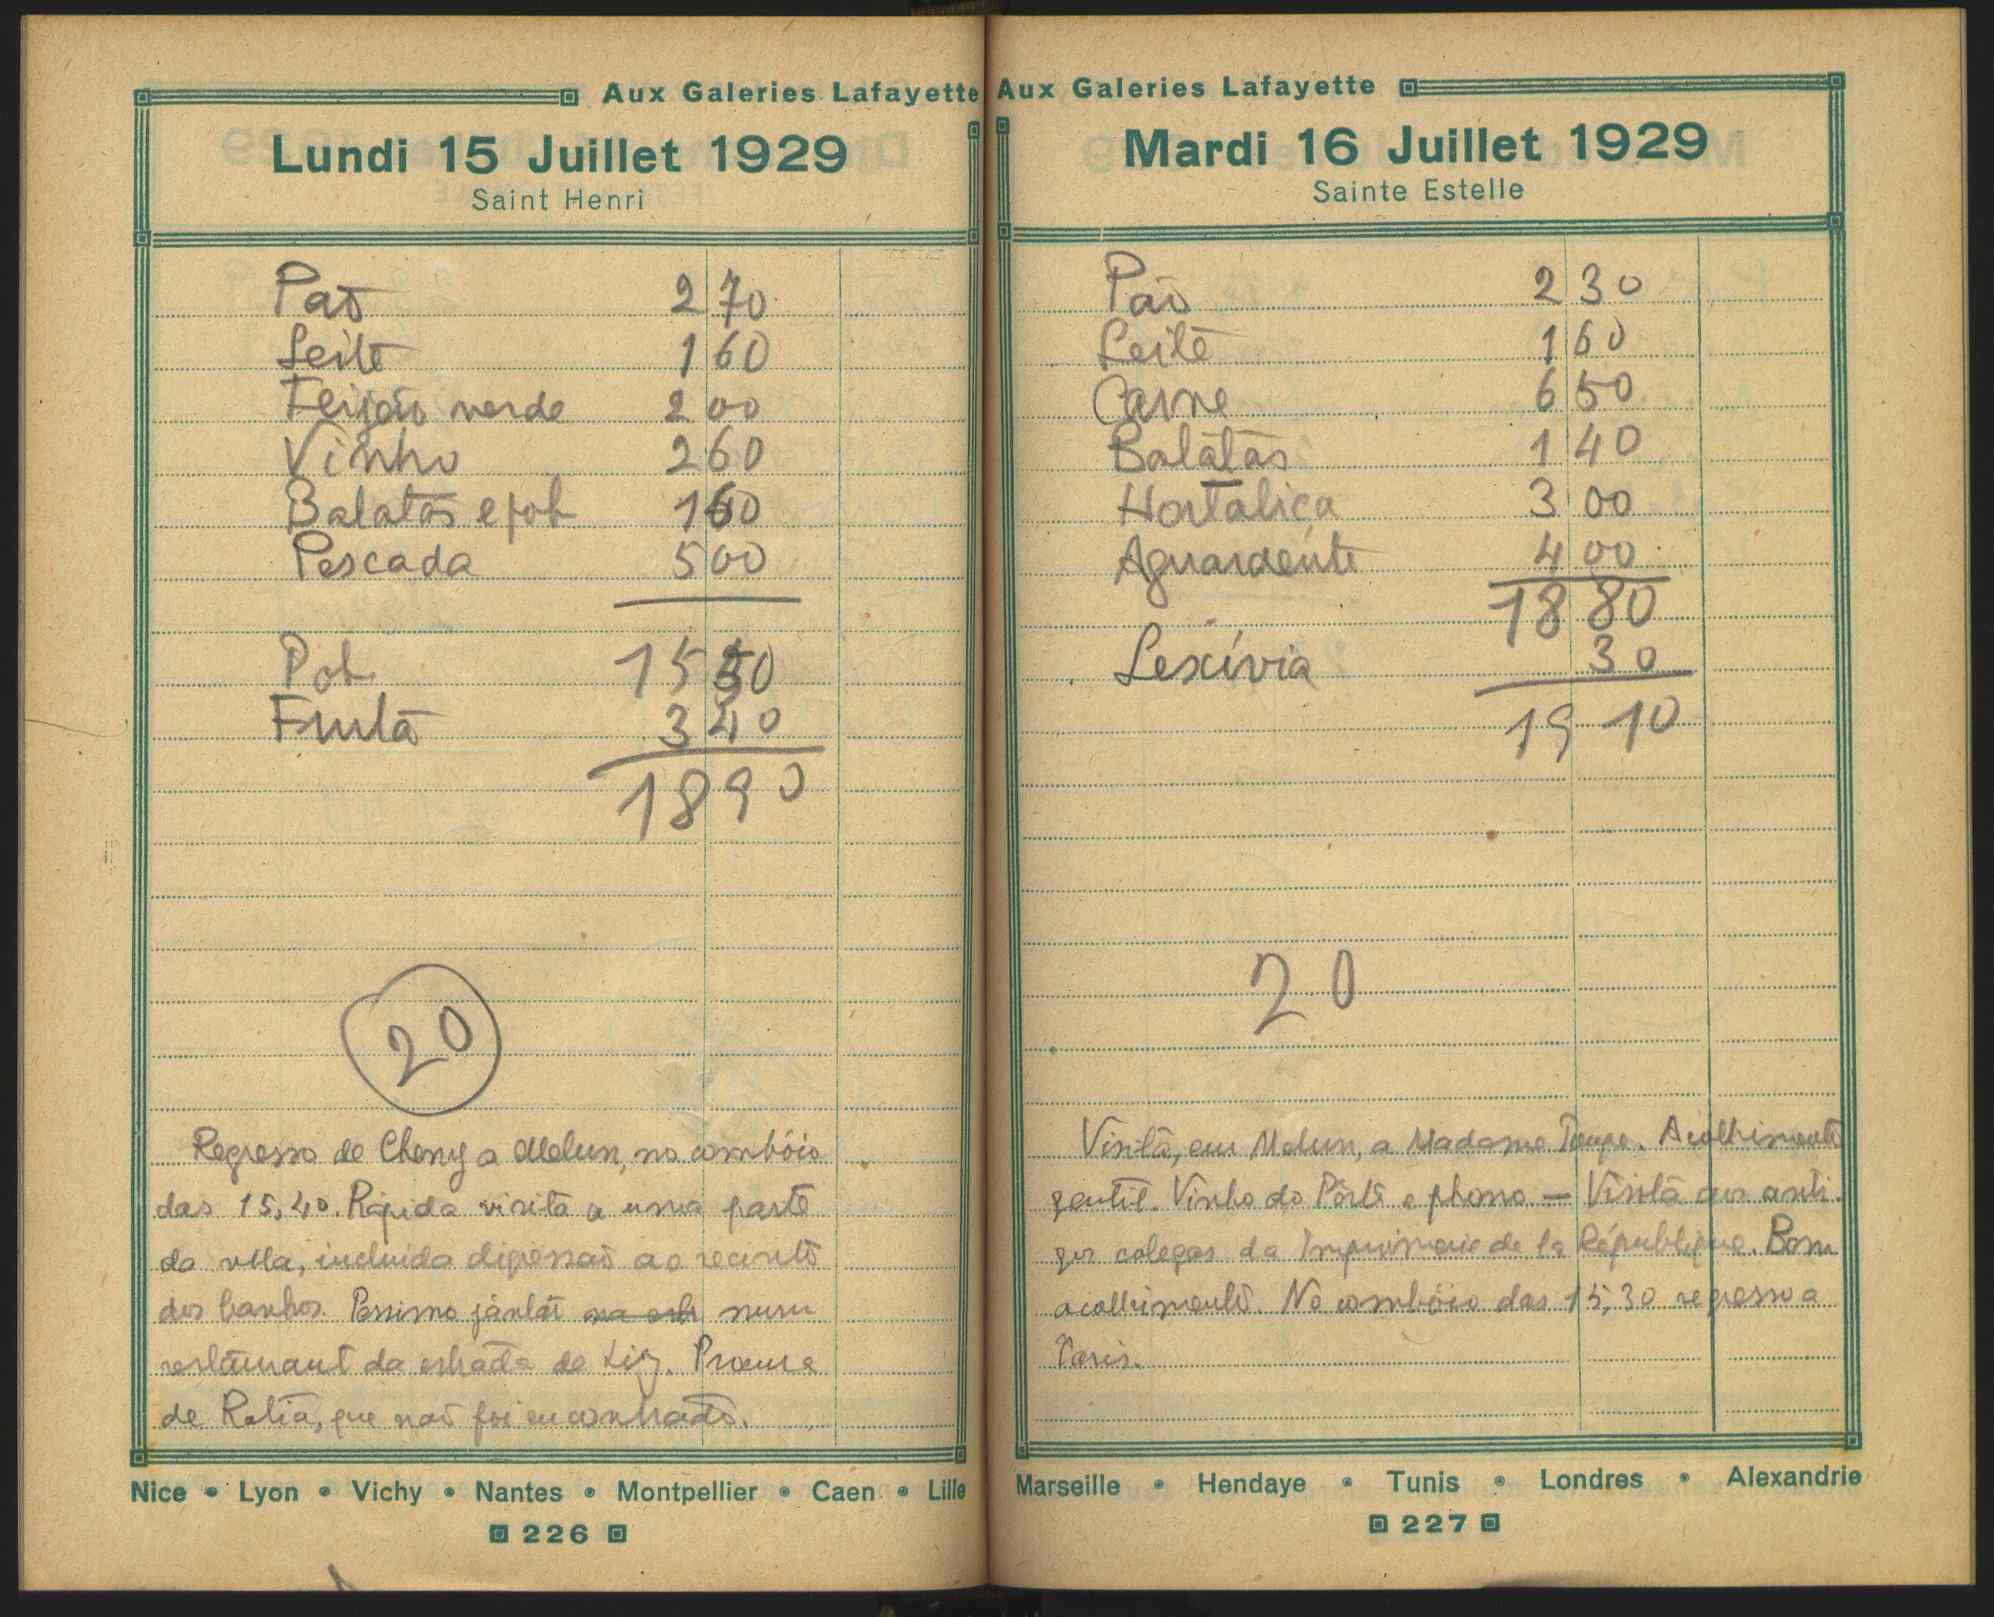 Aux Galeries Lafayette
Lundi 15 Juillet 1929
Saint Henri
Pão 2 70
Leite 1 60
Feijão verde 2 00
Vinho 2 60
Batatas e pot 1 60
Pescada 5 00
Pot 15 50
Frutá 3 40
18 90
20
Regresso de Chemy a Melun, no combóio
das 15,40. Rápida visita a uma parte
da vila, incluida digressão ao recinto
dos banhos. Pessimo jántar num
restaurant da estrada de
de que não foi encontrado.
Nice • Lyon • Vichy • Nantes • Montpellier • Caen • Lille
226
Aux Galeries Lafayette
Mardi 16 Juillet 1929
Sainte Estelle
Pão 2 30
Leite 1 60
Carne 6 50
Batatas 1 40
Hortaliça 3 00
Aguardente 4 00
18 80
Lexívia 30
19 10
20
Visita, em Melun, a Madame Acolhimento
gentil. Vinho do Pôrto e phono — Visita aos anti-
gos colegas da Imprimerie de la République. Bom
acolhimento. No combóio das 15,30 regresso a
Paris.
Marseille • Hendaye • Tunis • Londres • Alexandrie
227